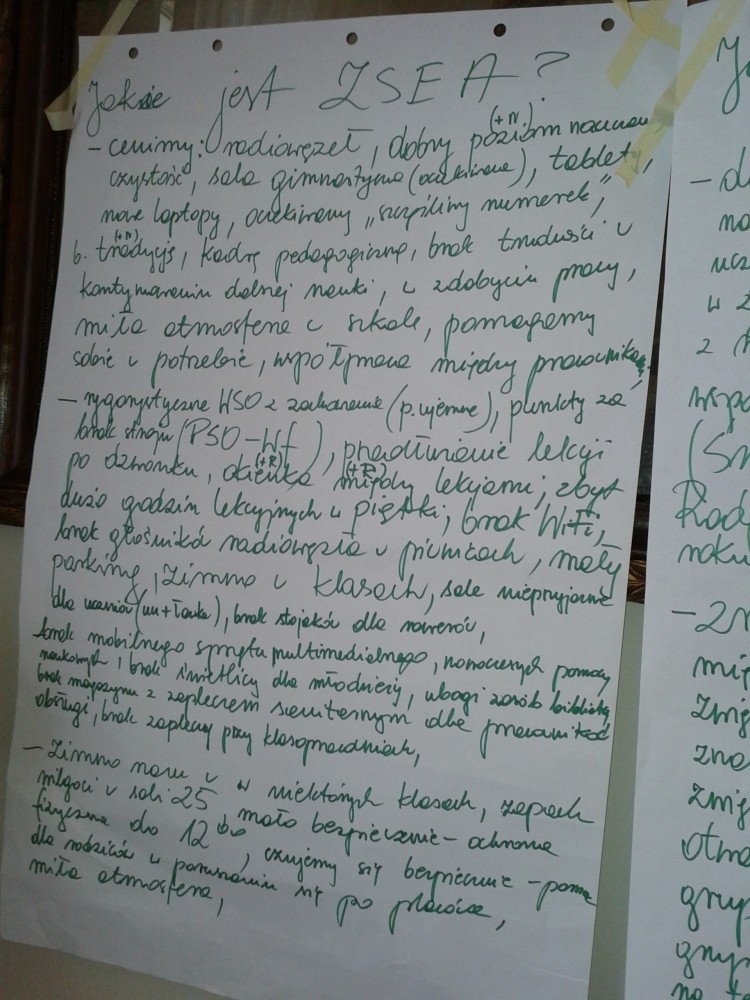 Jakie jest ZSEA?
- cenimy: radiowęzeł, dobry (+N.) poziom nauczan
czystość, sala gimnastyczna (oczekiwana), tablety,
nowe laptopy, oczekiwany „szczęśliwy numerek",
b. (+N) tradycje, kadrę pedagogiczną, brak trudności w
kontynuowaniu dalszej nauki, w zdobyciu pracy,
miła atmosfera w szkole, pomagamy
sobie w potrzebie, współpraca między pracownikam
- rygorystyczne WSO z zachowania (p. ujemne), punkty za
brak stroju (PSO-Wf), przedłużanie lekcji
po dzwonku, okienka (+R) między (+R) lekcjami, zbyt
dużo godzin lekcyjnych w piątki, brak WiFi,
brak głośników radiowęzła w piwnicach, mały
parking, zimno w klasach, sale nieprzyjazne
dla uczniów, brak stojaków dla rowerów,
brak mobilnego sprzętu multimedialnego, nowoczesnych pomocy
naukowych, brak świetlicy dla młodzieży, ubogi zasób biblioteki
brak magazynu z zapleczem sanitarnym dla pracowników
obsługi, brak zaplecza przy klasopracowniach,
- zimno rano w w niektórych klasach, zapach
wilgoci w sali 25 mało bezpiecznie - ochrona
fizyczna do 12 00, czujemy się bezpiecznie - pomoc
dla rodziców w poruszaniu się po placówce,
miła atmosfera,
- d
no
ucz
w z
z
wspó
(Sn
Rod
roku
- zn
mię
zmię
zna
zmię
atmo
grup
grup
na t